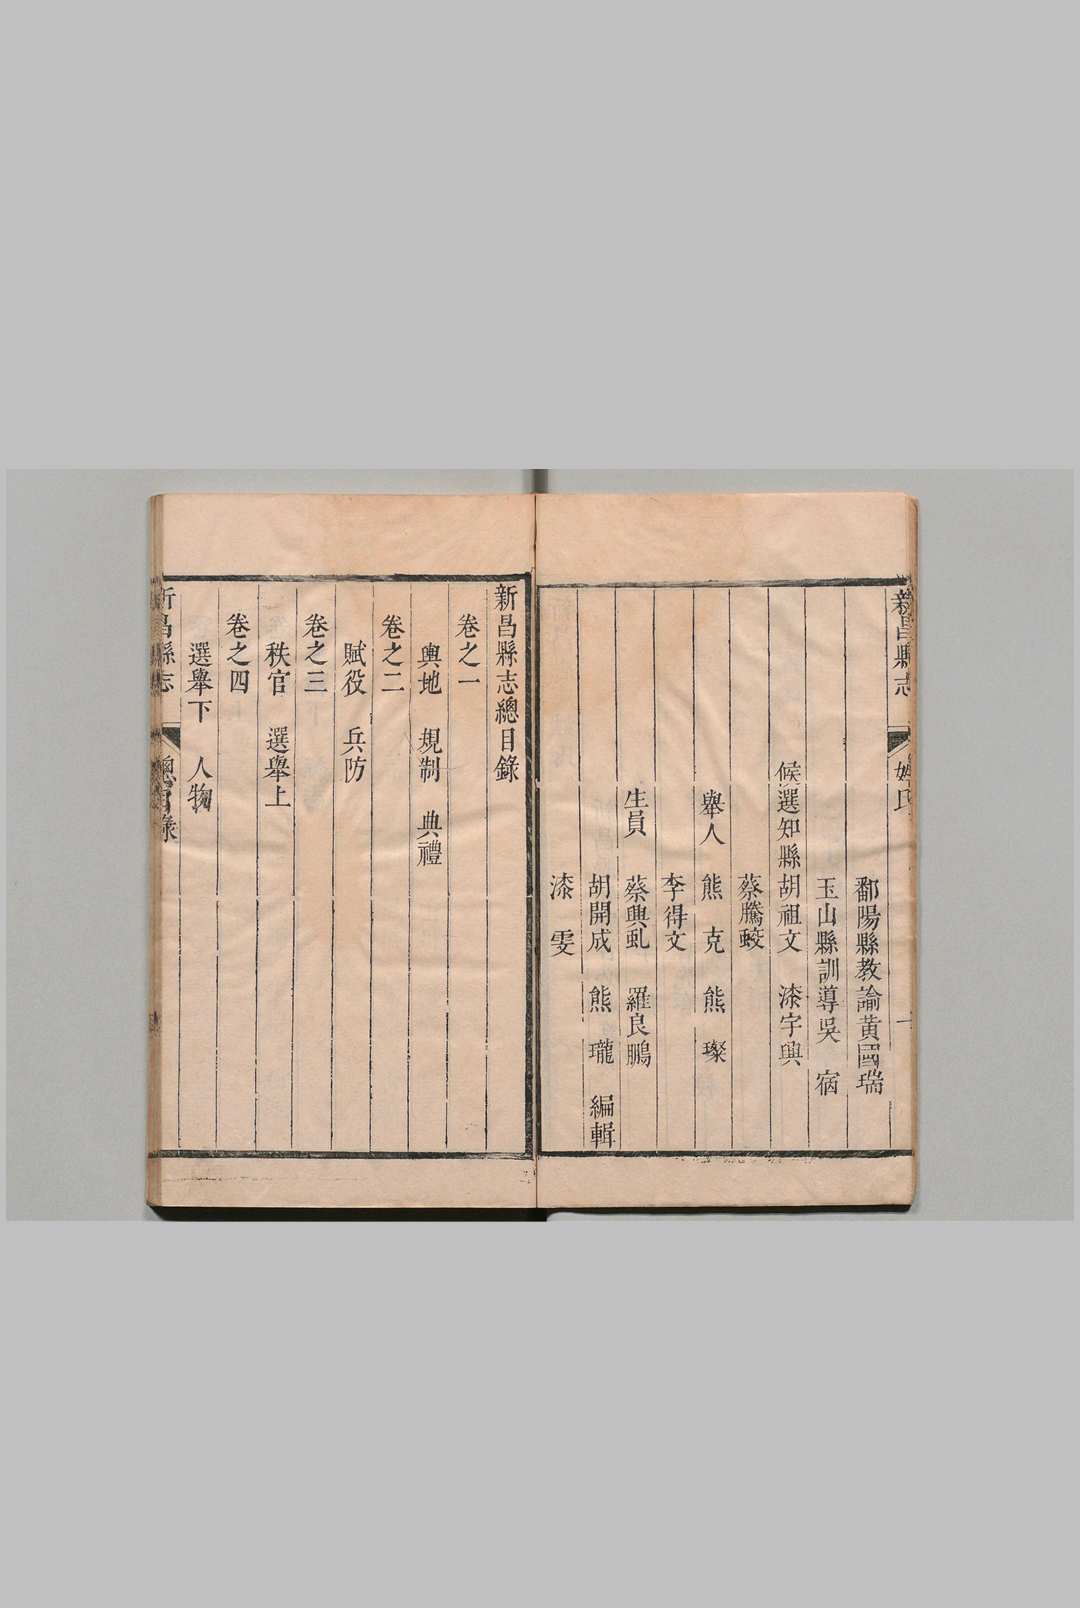 新昌縣志 姓氏 一
鄱陽縣教諭黄國瑞
玉山縣訓導吳 宿
候選知縣胡祖文 漆字興
蔡騰蛟
舉人 熊 克 熊 璨
李得文
生員 蔡興虬 羅良鵬
胡開成 熊 瓏 編輯
漆 雯
新昌縣志總目錄
卷之一
輿地 規制 典禮
卷之二
賦役 兵防
卷之三
秩官 選舉上
卷之四
選舉下 人物
新昌縣志 總目錄